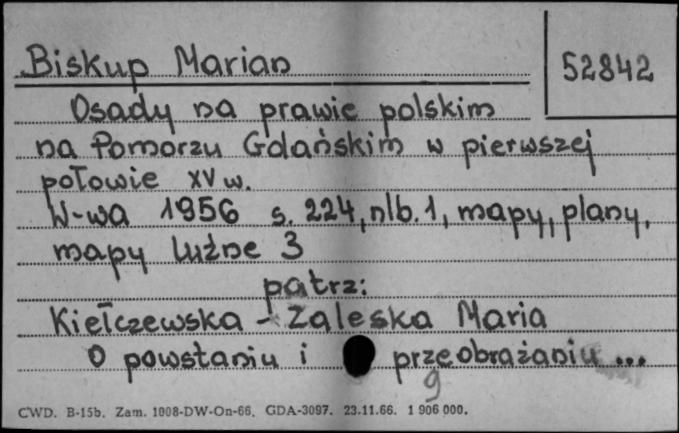 Biskup Marian
52842
Osady na prawie polskim
na Pomorzu Gdańskim w pierwszej
połowie XV w.
W-wa 1956 s. 224, nlb. 1, mapy, plany,
mapy luźne 3
patrz:
Kiełczewska - Zaleska Maria
O powstaniu i przeobrażaniu ...
9
CWD. B-15b. Zam. 1008-DW-On-66. GDA-3097. 23.11.66. 1 906 000.